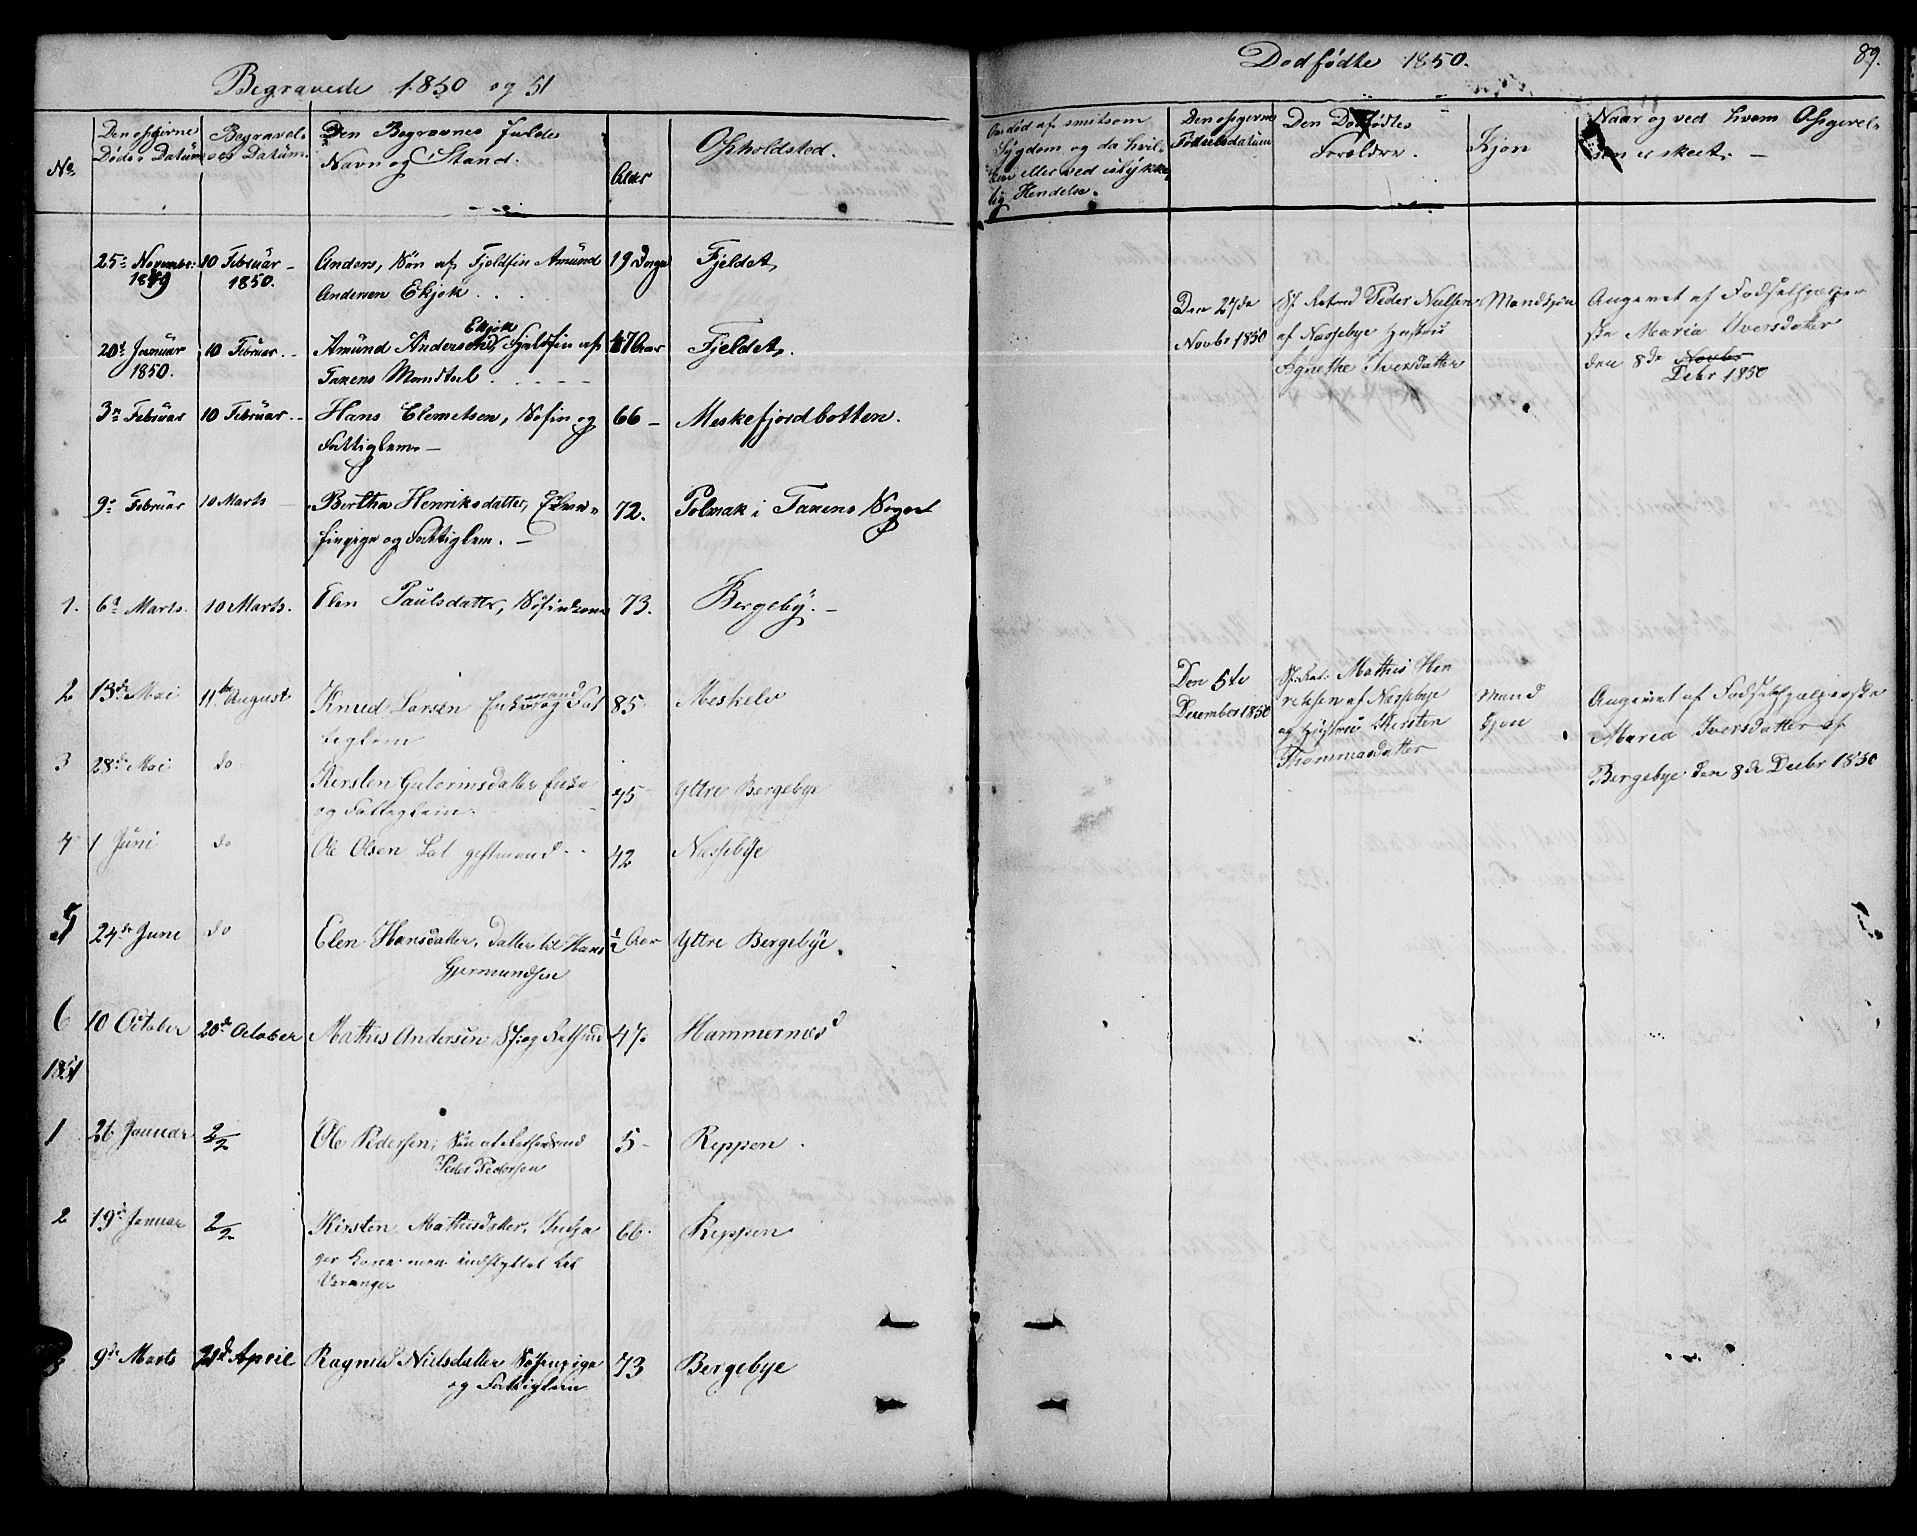 Begravede 1850 og 51
No
Den opgivne Døds-Datum
Begravel- ses Datum.
Den Begravnes fulde Navn og Stand.
Alder
Opholdsted.
25 November 1849
10 Februar 1850.
Anders, Søn af Fjeldfin Amund
Andersen Ekjok
19 Dage
Fjeldet,
20 Januar 1850.
10 Februar
Amund Andersen Ekjok Fjeldfin af
Tanens Mandtal
Fjeldet,
3 Februar
10 Februar
Hans Clemetsen, Søfin og
Fattiglem
66
Meskefjordbotten.
9 Februar
10 Marts
Bertha Henriksdatter,
finpige og Fattiglem.
72.
Polmak i Tanens Sogn
1.
6 Marts.
10 Marts.
Elen Paulsdatter, Søfindkone
73.
Bergeby.
2
13de Mai
11te August
Knud Larsen Enkemand og Fat
tiglem
85
Meskelv
3
28de Mai
do
Kirsten Gulormsdatter Enke
og Fattiglem
75
Yttre Bergebye
4
1 Juni
do
Ole Olsen Lat giftmand
42
Næssebye
5
24de June
do
Elen Hansdatter, datter til Hans
Gjermundsen
1/2 Aar
Yttre Bergebye.
6
10 October
20de October
Mathis Andersen Sf: og Retsfind
47
Hammernæs
1851
1
26 Januar
2/2
Ole Pedersen, Søn af
Peder Pedersen
5
Reppen.
2
19de Januar
2/2
Kirsten Mathisdatter,
ger Kone men indflyttet til
Varanger
66
Reppen
3
9de Marts
21de April
Ragnild Nielsdatter Søfinpige
og Fattiglem
73
Bergebye
Dødfødte 1850.
89.
Om død af smitsom
Sygdom og da hvil-
ken eller ved ulykke
lig Hendelse.
Den opgivne
Fødselsdatum
Den Dødfødtes
Forældre.
Kjøn
Naar og ved hvem Opgivel-
sen er skeet.
Den 27de
Novbr 1850
Sf. Peder Nielsen
af Næssebye Hustru
Agnethe Iversdatter
Mandkjøn
Angivet af Fødselhjælper
ske Maria Iversdatter
den 8de Novbr
Debr 1850
Den 5te
December 1850
Mathis Hen
riksen af Næssebye
og Hustru Kersten
Thommasdatter
Mand
Kjøn
Angivet af Fødselhjælperske
Maria Iversdatter af
Bergebye den 8de Decbr 1850